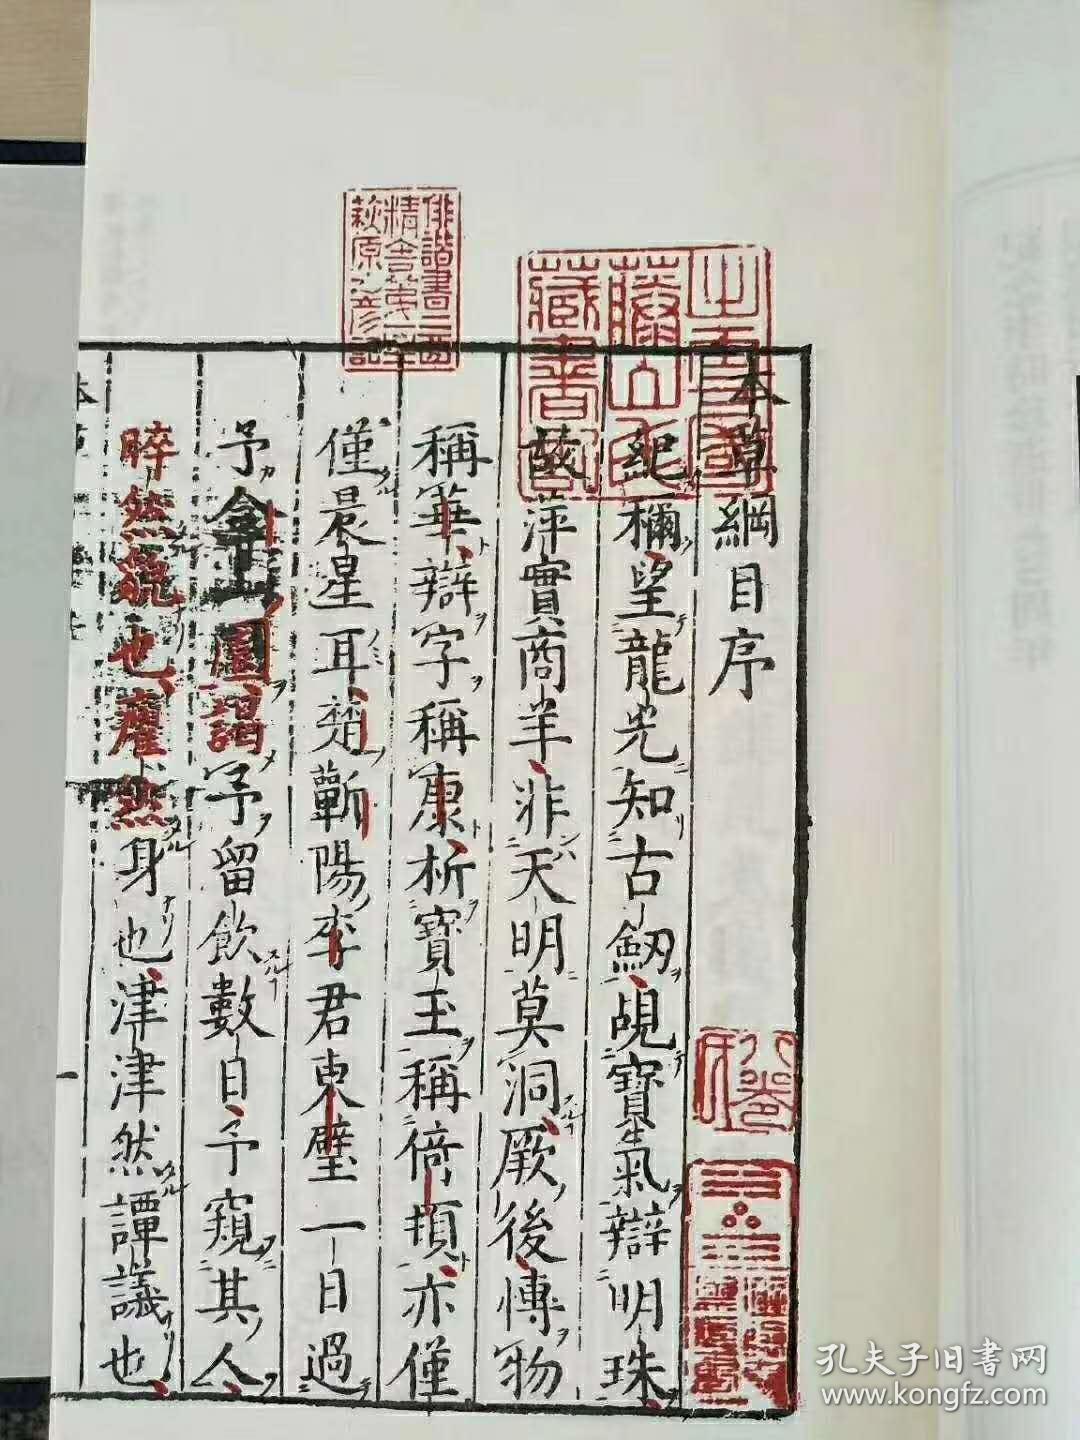 本草綱目序
紀稱望龍光知古劒覘寶氣辯明珠
故萍實商羊非天明莫洞厥後博物
稱華辯字稱康析寶玉稱倚頓亦僅
僅晨星耳楚蘄陽李君東璧一日過
予弇山園謁予留飲數日予窺其人
晬然貌也癯然身也津津然譚議也
一
俳諧書二酉
精舍第一坐
萩原乙彦記
藏書
孔夫子旧书网
www.kongfz.com